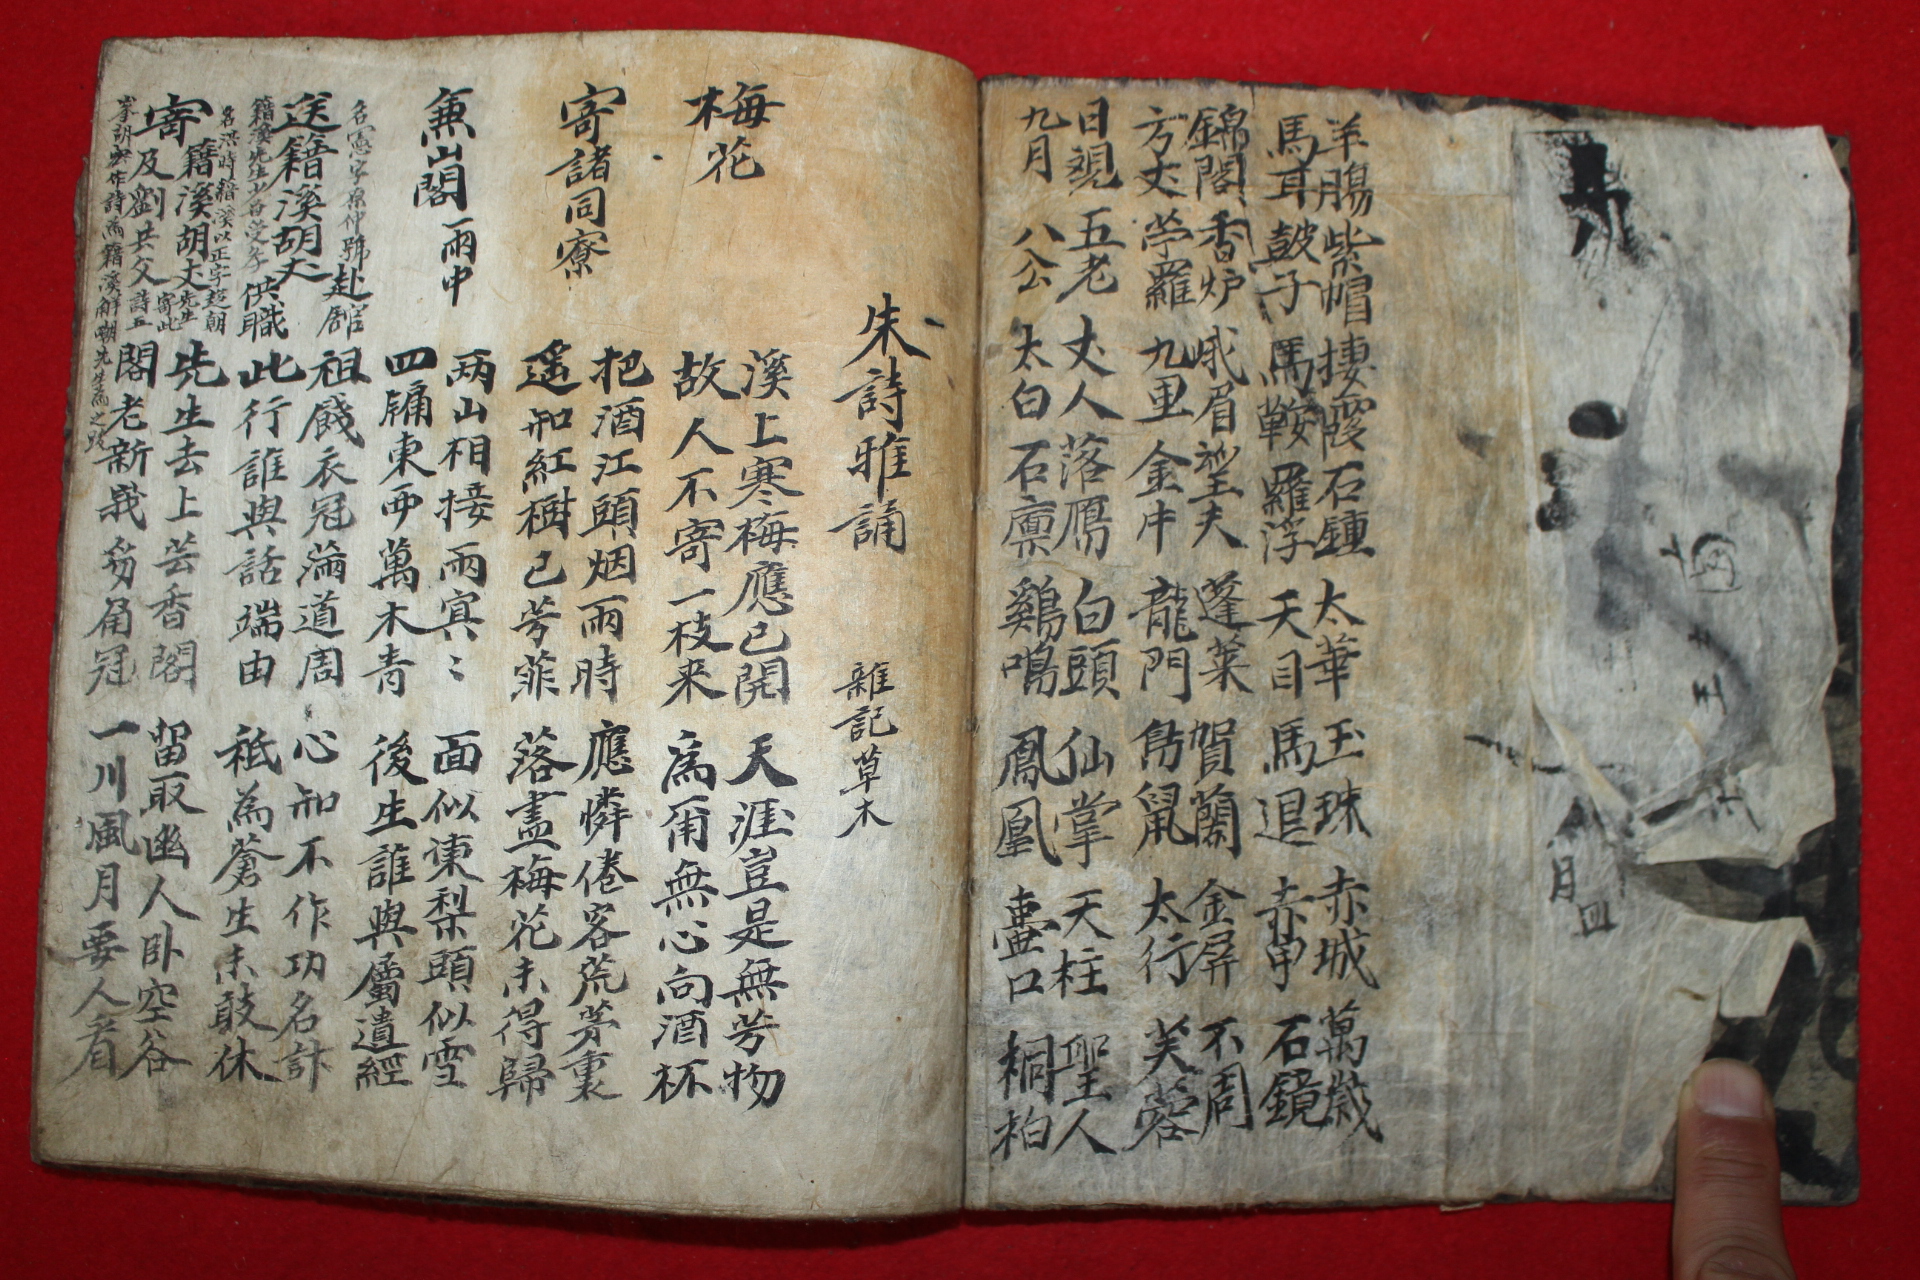 羊腸 紫帽 捿霞 石鍾 太華 玉珠 赤城 萬歲
馬耳 鼓子 馬鞍 羅浮 天目 馬退 赤甲 石鏡
錦閣 香炉 峨眉 望夫 蓬萊 賀蘭 金屏 不周
方丈 苧羅 九里 金牛 龍門 鳥鼠 太行 芙蓉
日觀 五老 丈人 落鴈 白頭 仙掌 天柱 聖人
九月 八公 太白 石廪 鷄鳴 鳳凰 壷口 桐柏
朱詩雅誦 雜記草木
梅花
溪上寒梅應已開
故人不寄一枝来
天涯豈是無芳物
為甭無心向酒杯
寄諸同寮
把酒江頭烟雨時
遥知紅樹已芳菲
應憐倦客荒茅裏
落盡梅花未得歸
兼山閣 雨中
兩山相接雨寘〻
四牖東西萬木青
面似凍梨頭似雪
後生誰與屬遺經
送籍溪胡丈赴舘供職
祖餞衣冠滿道周
此行誰與話端由
心知不作功名計
秪為蒼生未敢休
寄籍溪胡丈及劉共父
先生去上芸香閣
閣老新峩豸角冠
留取幽人卧空谷
一川風月要人看